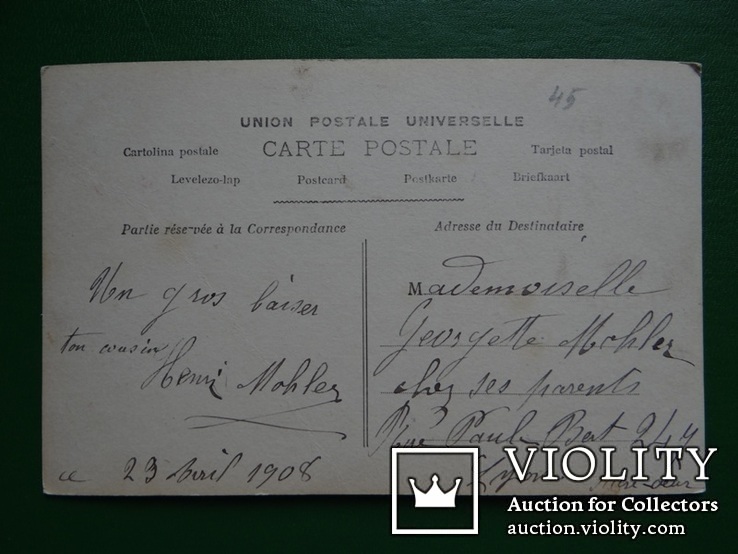 45
UNION POSTALE UNIVERSELLE
CARTE POSTALE
Cartolina postale
Tarjeta postal
Levelezo-lap Postcard Postkarte Briefkaart
Partie réservée à la Correspondance
Un gros baiser
ton cousin
Henri Mohler
ce 23 Avril 1908
Adresse du Destinataire
Mademoiselle
Georgette Mohler
chez ses parents
Rue Paul Bert 247
Lyon
VIOLITY
Auction for Collectors
auction.violity.com